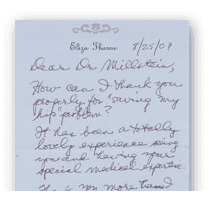 Eliza Thorne 8/25/09
Dear Dr. Millstein,
How can I thank you
properly for "saving my
hip" problem?
It has been a totally
lovely experience
you and having your
special medical expertise.